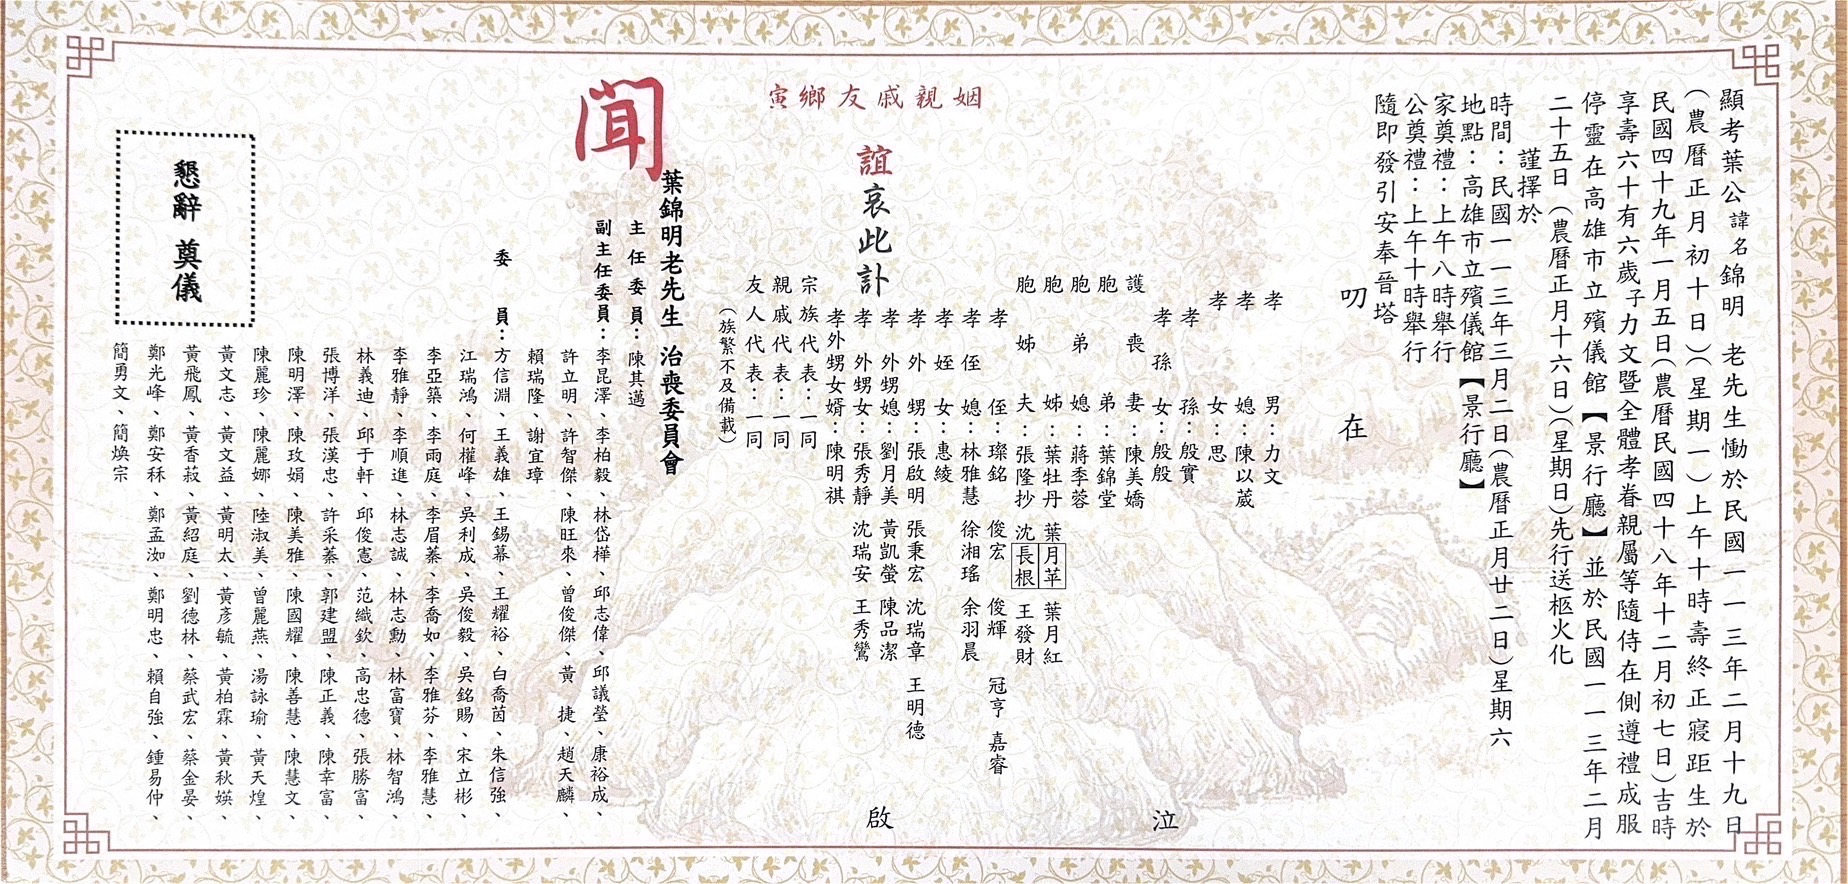 顯考葉公諱名錦明 老先生慟於民國一一三年二月十九日
(農曆正月初十日)(星期一)上午十時壽終正寢距生於
民國四十九年一月五日(農曆民國四十八年十二月初七日)吉時
享壽六十有六歲子力文暨全體孝眷親屬等隨侍在側遵禮成服
停靈在高雄市立殯儀館【景行廳】並於民國一一三年二月
二十五日(農曆正月十六日)(星期日)先行送柩火化
謹擇於
時間:民國一一三年三月二日(農曆正月廿二日)星期六
地點:高雄市立殯儀館【景行廳】
家奠禮:上午八時舉行
公奠禮:上午十時舉行
隨即發引安奉晉塔
叨 在
孝 男:力文
孝 媳:陳以葳
孝 女:思
孝 孫:殷實
孝 孫 女:殷殷
護 喪 妻:陳美嬌
胞 弟:葉錦堂
胞 弟 媳:蔣季蓉
胞 姊:葉牡丹 葉月苹 葉月紅
胞 姊 夫:張隆抄 沈長根 王發財
孝 侄:璨銘 俊宏 俊輝 冠亨 嘉睿
孝 侄 媳:林雅慧 徐湘瑤 余羽晨
孝 姪 女:惠綾
孝 外 甥:張啟明 張秉宏 沈瑞章 王明德
孝 外 甥 媳:劉月美 黃凱螢 陳品潔
孝 外 甥 女:張秀靜 沈瑞安 王秀鸞
孝外甥女婿:陳明祺
宗族代表:一同
親戚代表:一同
友人代表:一同
(族繁不及備載)
泣
啟
誼哀此訃
姻親戚友鄉寅
聞
葉錦明老先生 治喪委員會
主任委員:陳其邁
副主任委員:李昆澤、李柏毅、林岱樺、邱志偉、邱議瑩、康裕成、
許立明、許智傑、陳旺來、曾俊傑、黃 捷、趙天麟、
賴瑞隆、謝宜璋
委 員:方信淵、王義雄、王錫冪、王耀裕、白喬茵、朱信強、
江瑞鴻、何權峰、吳利成、吳俊毅、吳銘賜、宋立彬、
李亞築、李雨庭、李眉蓁、李喬如、李雅芬、李雅慧、
李雅靜、李順進、林志誠、林志勳、林富寶、林智鴻、
林義迪、邱于軒、邱俊憲、范織欽、高忠德、張勝富、
張博洋、張漢忠、許采蓁、郭建盟、陳正義、陳幸富、
陳明澤、陳玫娟、陳美雅、陳國耀、陳善慧、陳慧文、
陳麗珍、陳麗娜、陸淑美、曾麗燕、湯詠瑜、黃天煌、
黃文志、黃文益、黃明太、黃彥毓、黃柏霖、黃秋媖、
黃飛鳳、黃香菽、黃紹庭、劉德林、蔡武宏、蔡金晏、
鄭光峰、鄭安秝、鄭孟洳、鄭明忠、賴自強、鍾易仲、
簡勇文、簡煥宗
懇辭 奠儀